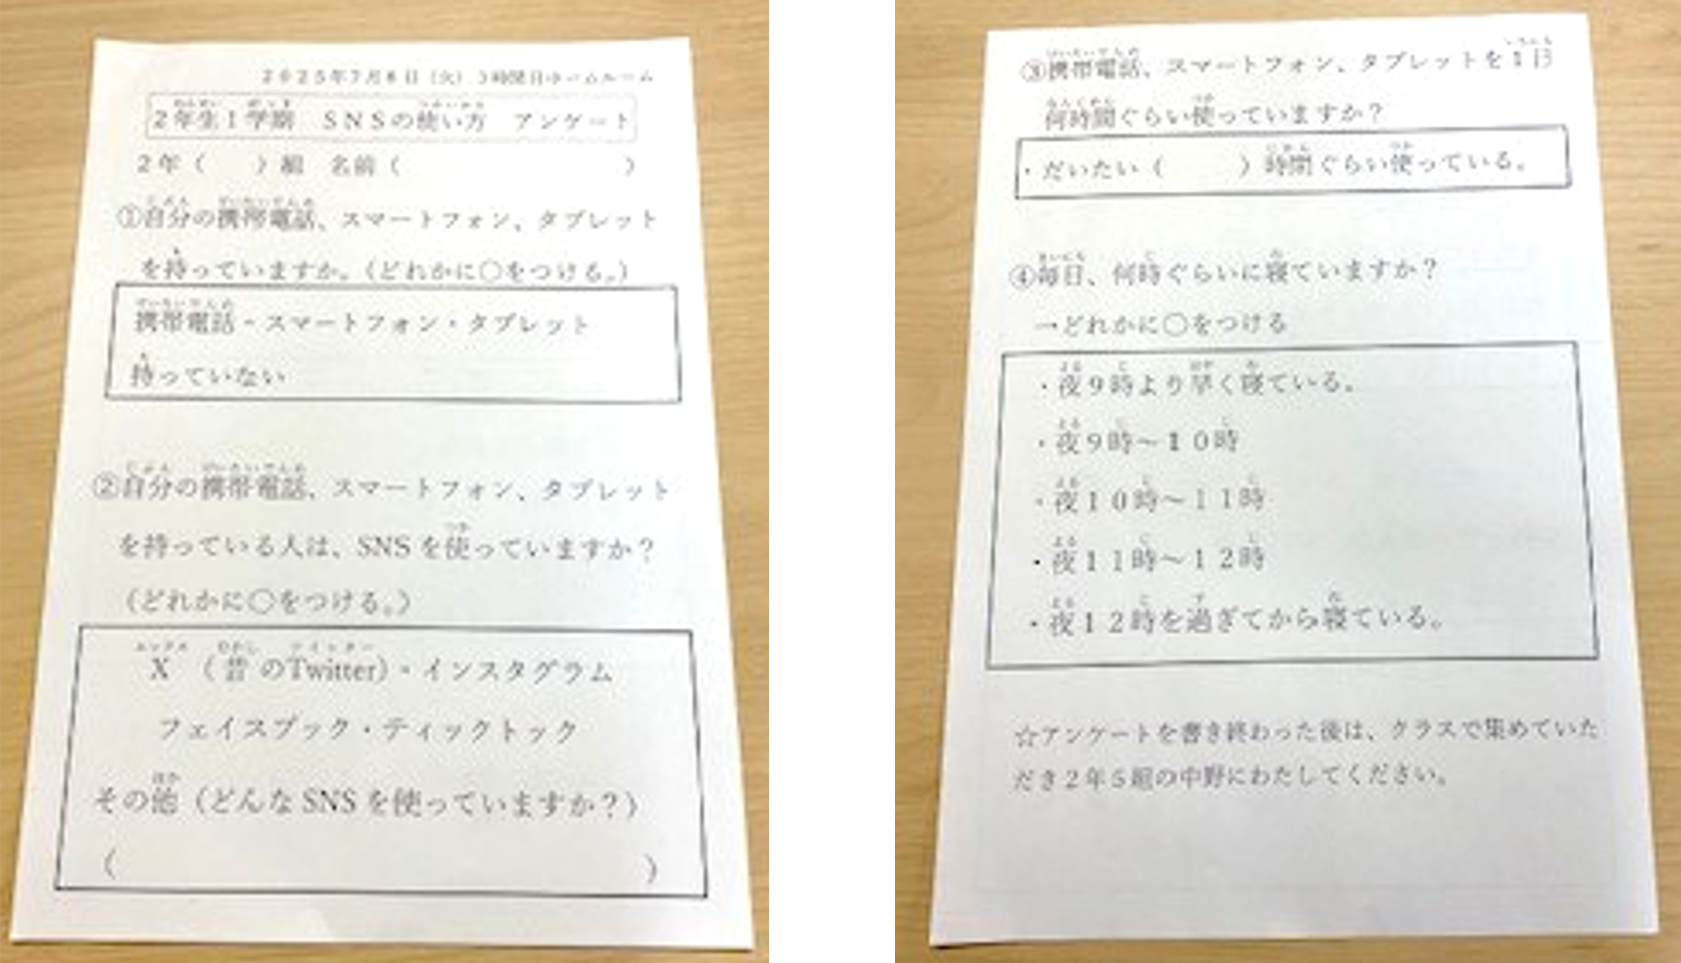 2025年7月8日(火)3時間目ホームルーム
2年生1学期 SNSの使い方 アンケート
2年( )組 名前( )
①自分の携帯電話、スマートフォン、タブレット
を持っていますか。(どれかに○をつける。)
携帯電話・スマートフォン・タブレット
持っていない
②自分の携帯電話、スマートフォン、タブレット
を持っている人は、SNSを使っていますか?
(どれかに○をつける。)
X (昔のTwitter)・インスタグラム
フェイスブック・ティックトック
その他(どんなSNSを使っていますか?)
( )
③携帯電話、スマートフォン、タブレットを1日
何時間ぐらい使っていますか?
・だいたい( )時間ぐらい使っている。
④毎日、何時ぐらいに寝ていますか?
→どれかに○をつける
・夜9時より早く寝ている。
・夜9時~10時
・夜10時~11時
・夜11時~12時
・夜12時を過ぎてから寝ている。
☆アンケートを書き終わった後は、クラスで集めていた
だき2年5組の中野にわたしてください。